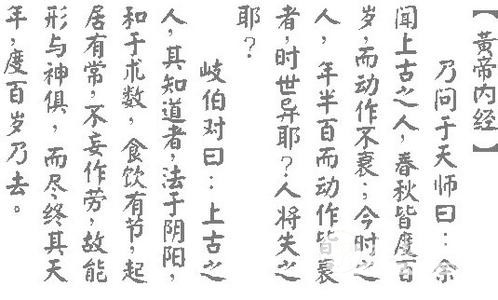 【黃帝内经】
乃问于天师曰：余
闻上古之人，春秋皆度百
岁，而动作不衰；今时之
人，年半百而动作皆衰
者，时世异耶？人将失之
耶？
岐伯对曰：上古之
人，其知道者，法于阴阳，
和于术数，食饮有节，起
居有常，不妄作劳，故能
形与神俱，而尽终其天
年，度百岁乃去。